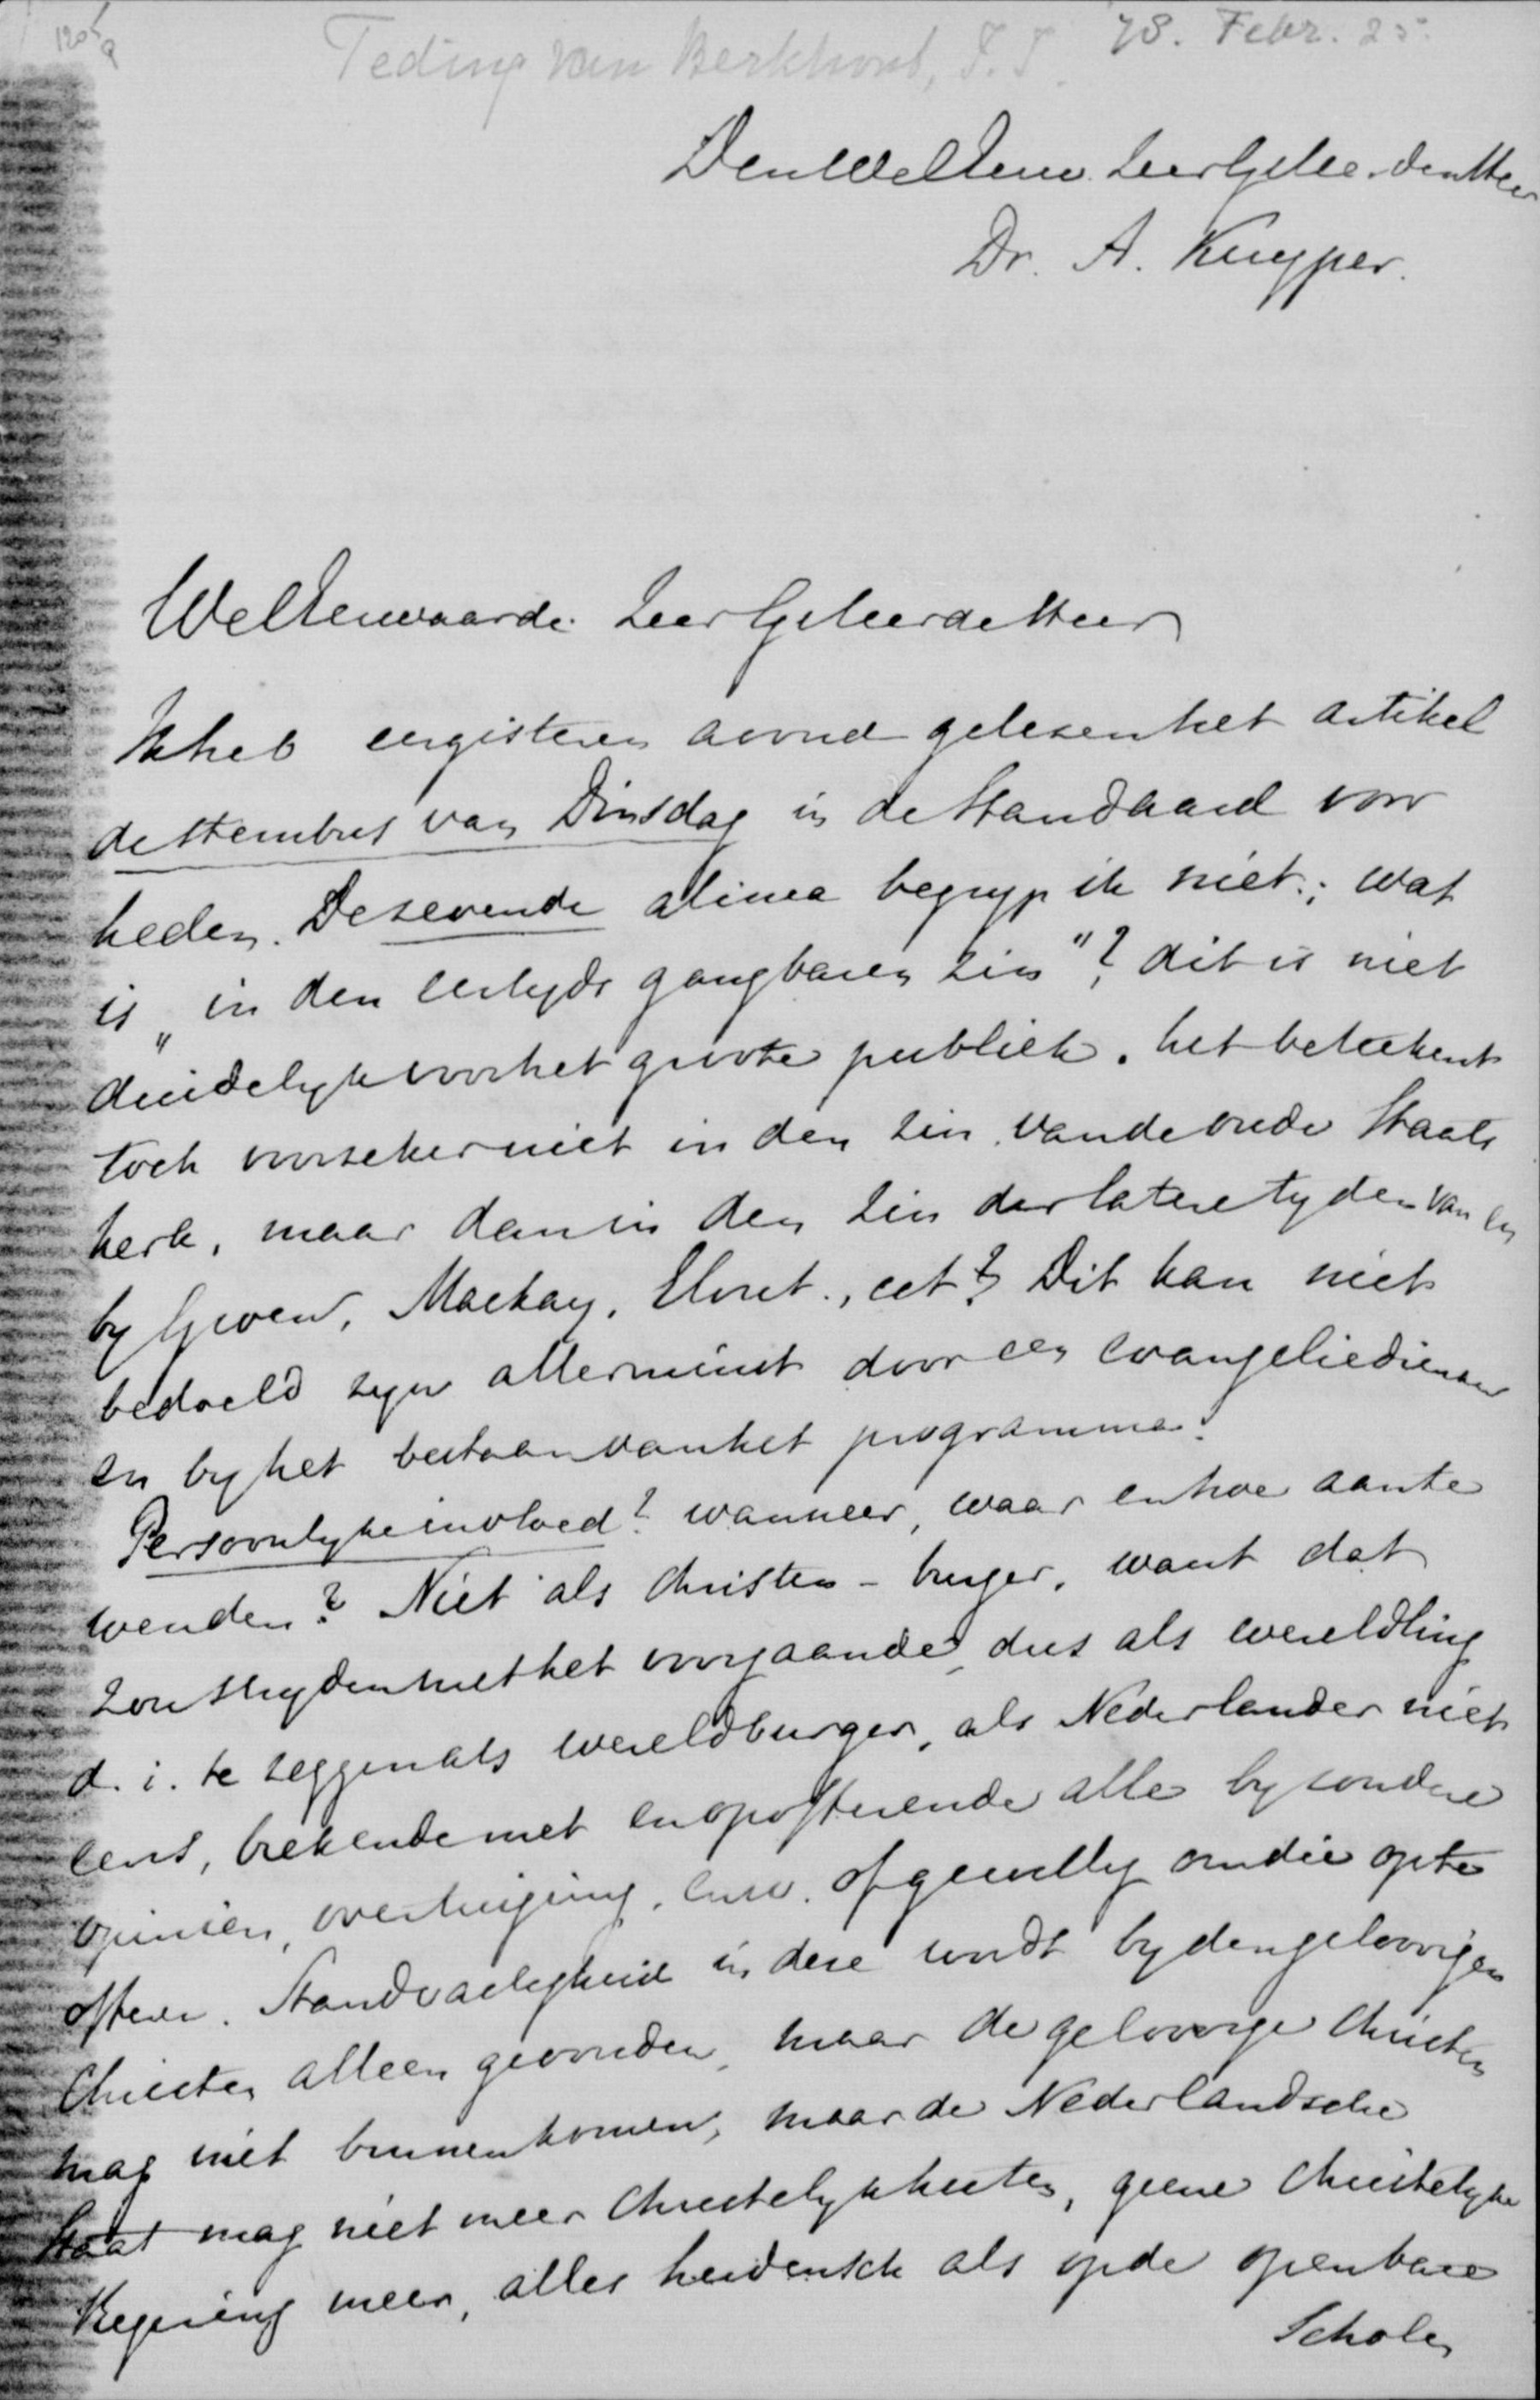 1205a
Teding van Berkhout, F. T. 78. Febr. 25.
Den WelEerw. ZeerGelee. den Heer
Dr. A. Kuyper.
WelEerwaarde ZeerGeleerde Heer
Ik heb eergisteren avond gelezen het artikel
de stembus van Dinsdag in de Standaard voor
heden. De zevende alinea begryp ik niet; wat
is „in den eertyds gangbaren zin"? dit is niet
duidelyk voor het groote publiek. het beteekent
toch voorzeker niet in den zin van de oude Staats
kerk, maar dan in den zin der latere tyden van en
by Groen, Mackay, Elout, cet? Dit kan niet
bedoeld zyn allerminst door een evangeliedienaar
en by het bestaan van het programma.
Persoonlyke invloed? wanneer, waar en hoe aan te
wenden? Niet als Christen-burger, want dat
zou stryden met het voorgaande, dus als wereldling
d. i. te zeggen als wereldburger, als Nederlander niet
eens, brekende met en opofferende alle byzondere
opiniën, overtuiging, enz. of gewillig om die op te
offeren. Standvastigheid in deze wordt by den geloovigen
Christen alleen gevonden, maar de geloovige Christen
mag niet binnenkomen, maar de Nederlandsche
Staat mag niet meer Christelyk heeten, geene Christelyke
Regering meer, alles heidensch als op de openbare
Scholen